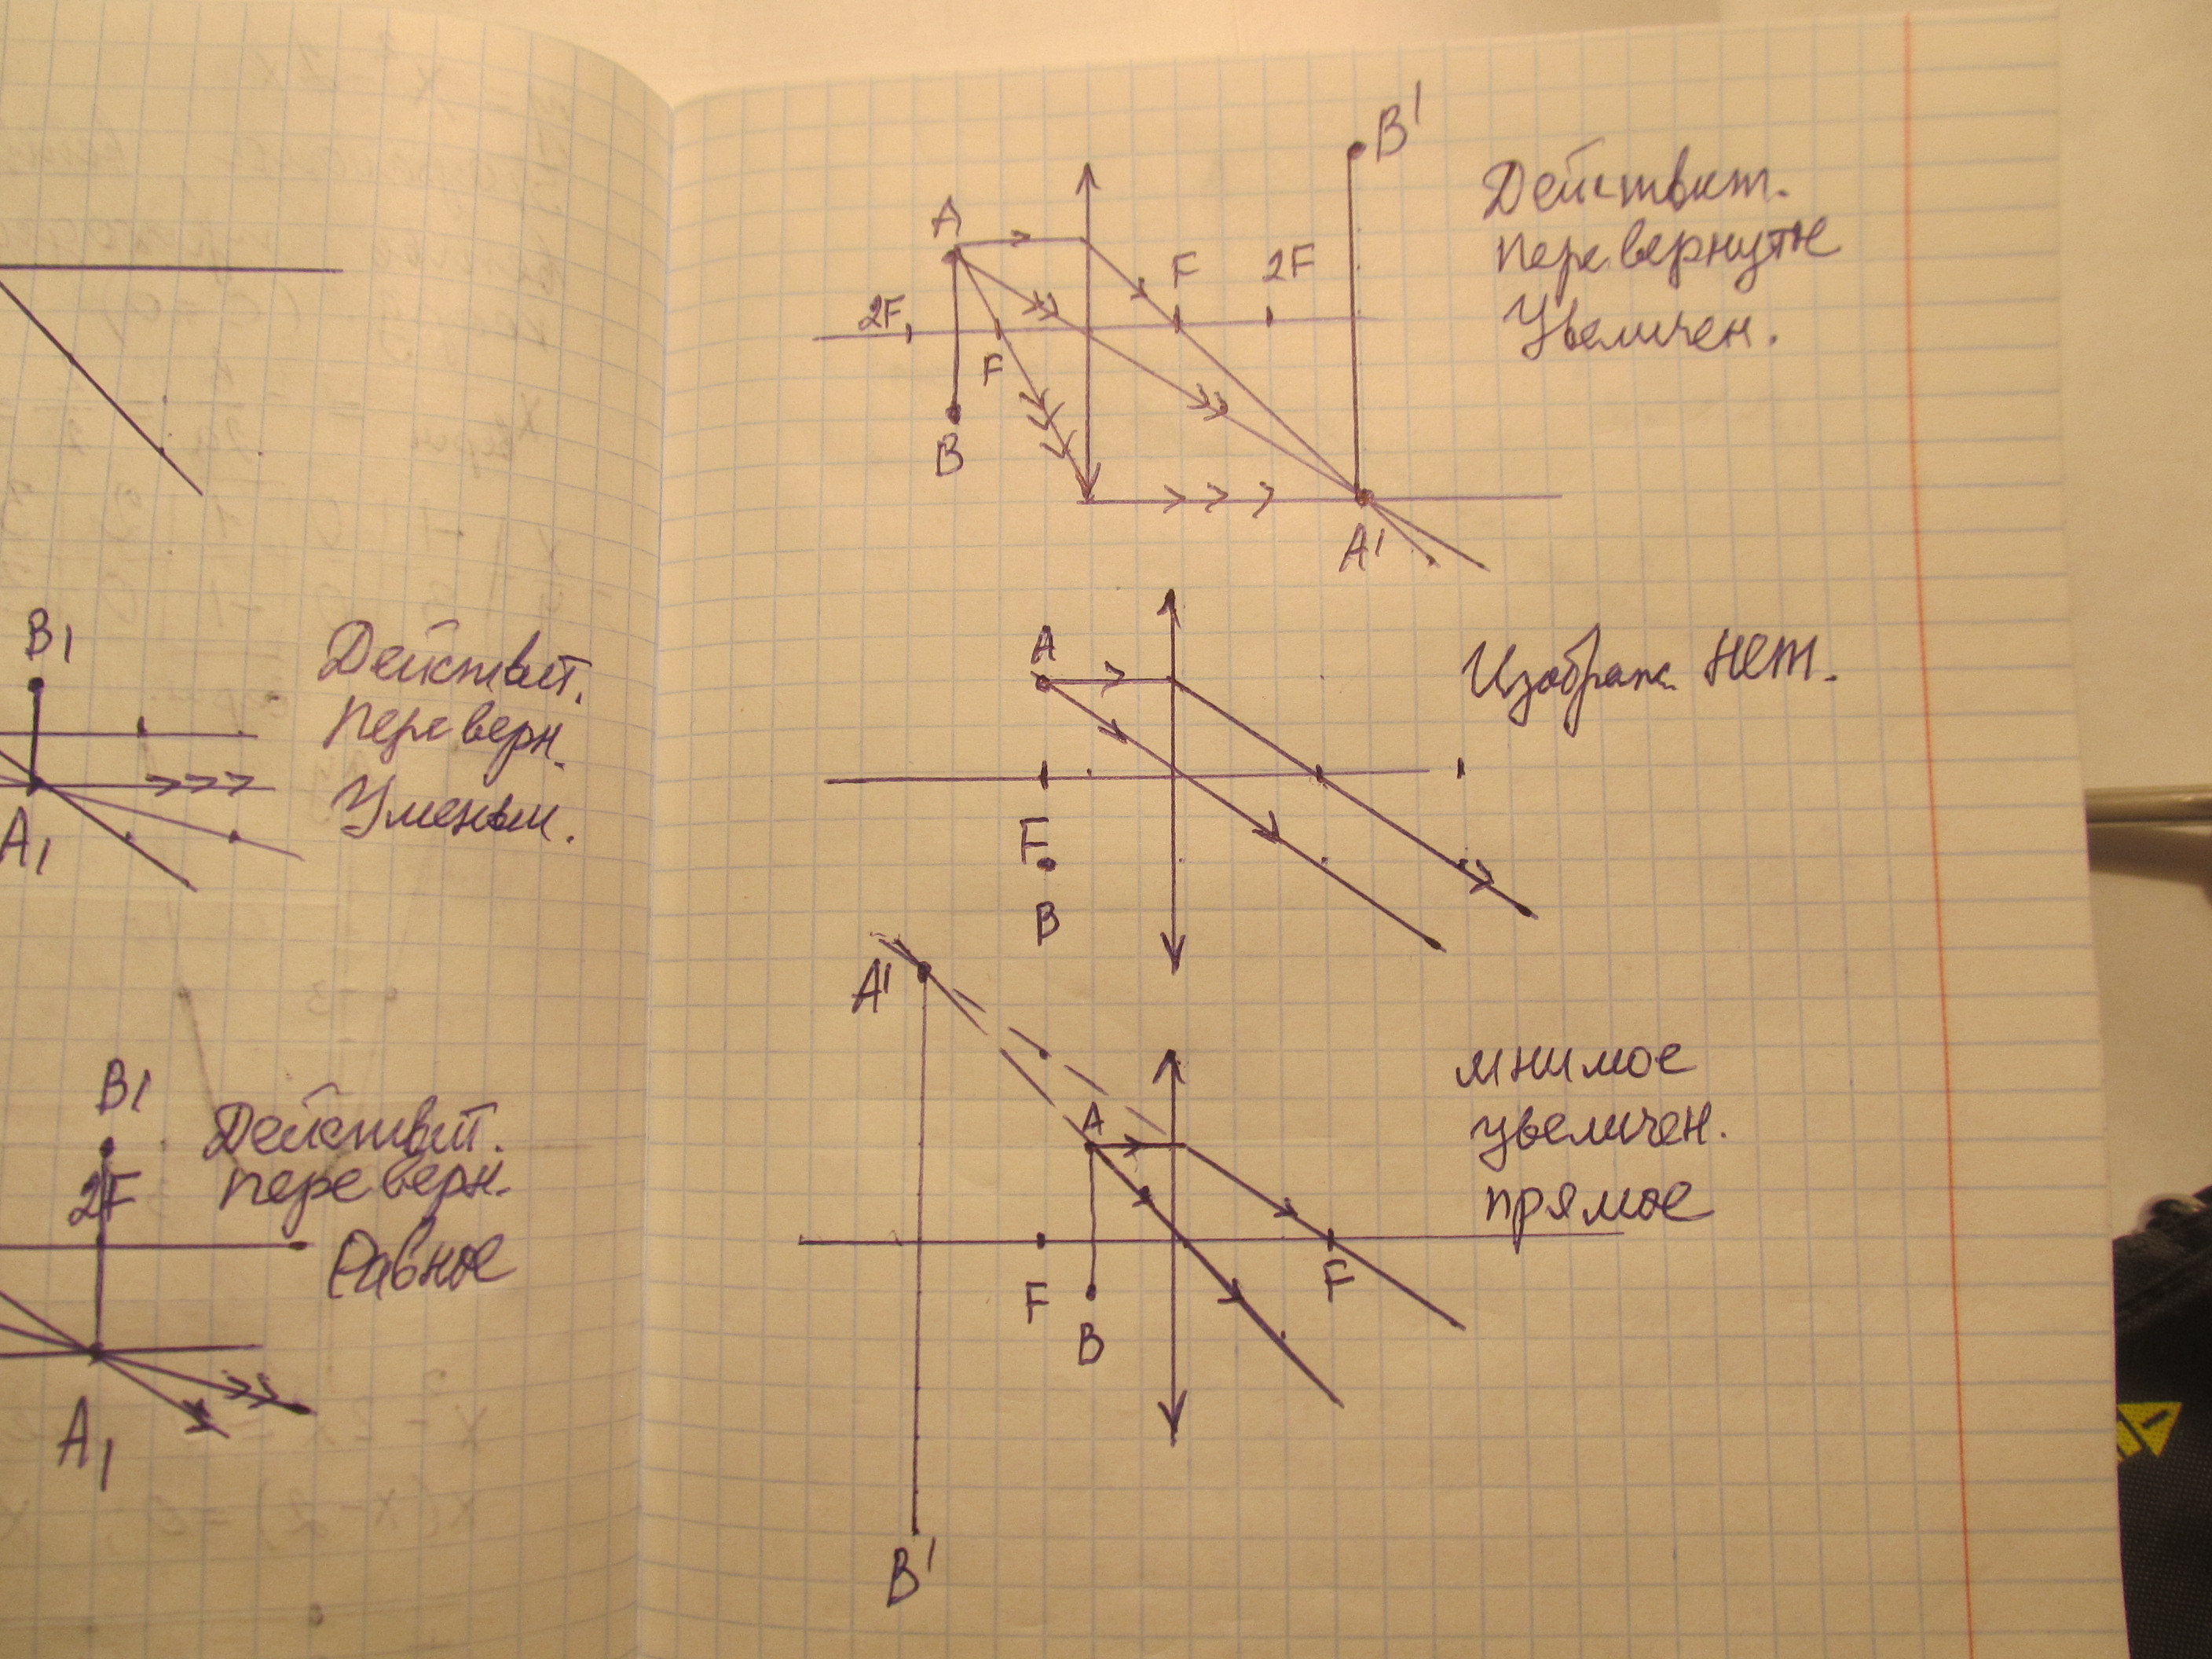 B1
Действит.
Переверн.
Уменьш.
A1
B1
2F
Действит.
переверн.
Равное
A1
B'
A
Действит.
перевернуты
Увеличен.
2F
F
F
2F
B
A'
A
Изображ. нет.
F
B
A'
A
мнимое
увеличен.
прямое
F
F
B
B'